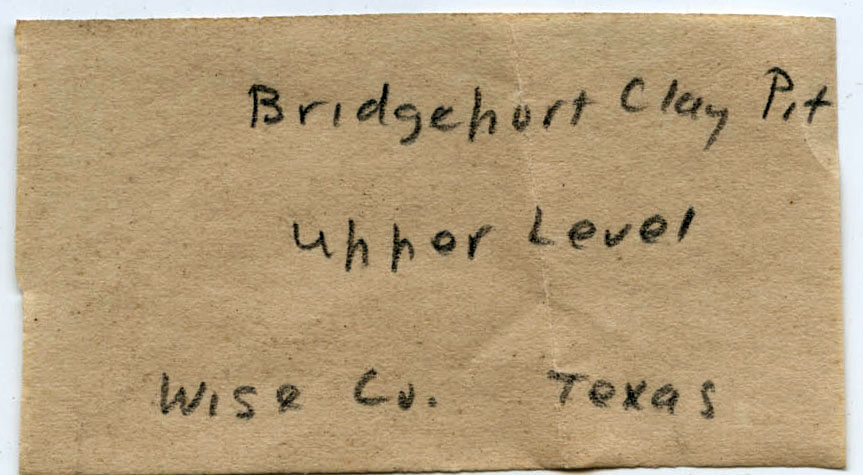 Bridgehort Clay Pit
Upper Level
Wise Co. Texas